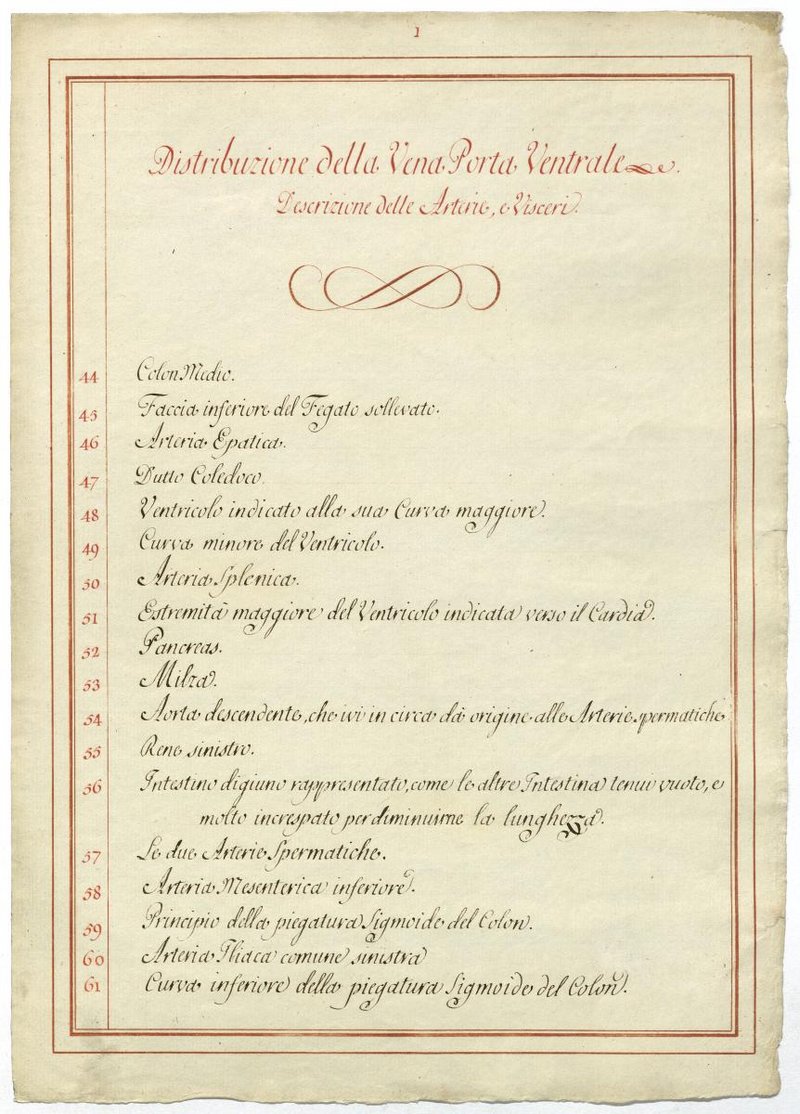 1
Distribuzione della Vena Porta Ventrale
Descrizione delle Arterie, e Visceri.
44 Colon Medio.
45 Faccia inferiore del Fegato sollevato.
46 Arteria Epatica.
47 Dutto Coledoco.
48 Ventricolo indicato alla sua Curva maggiore.
49 Curva minore del Ventricolo.
50 Arteria Splenica.
51 Estremità maggiore del Ventricolo indicata verso il Cardia.
52 Pancreas.
53 Milza.
54 Aorta descendente, che ivi in circa dà origine alle Arterie spermatiche
55 Rene sinistro.
56 Intestino digiuno rappresentato, come le altre Intestina tenui vuoto, e
molto increspato per diminuirne la lunghezza.
57 Le due Arterie Spermatiche.
58 Arteria Mesenterica inferiore.
59 Principio della piegatura Sigmoide del Colon.
60 Arteria Iliaca comune sinistra
61 Curva inferiore della piegatura Sigmoide del Colon.